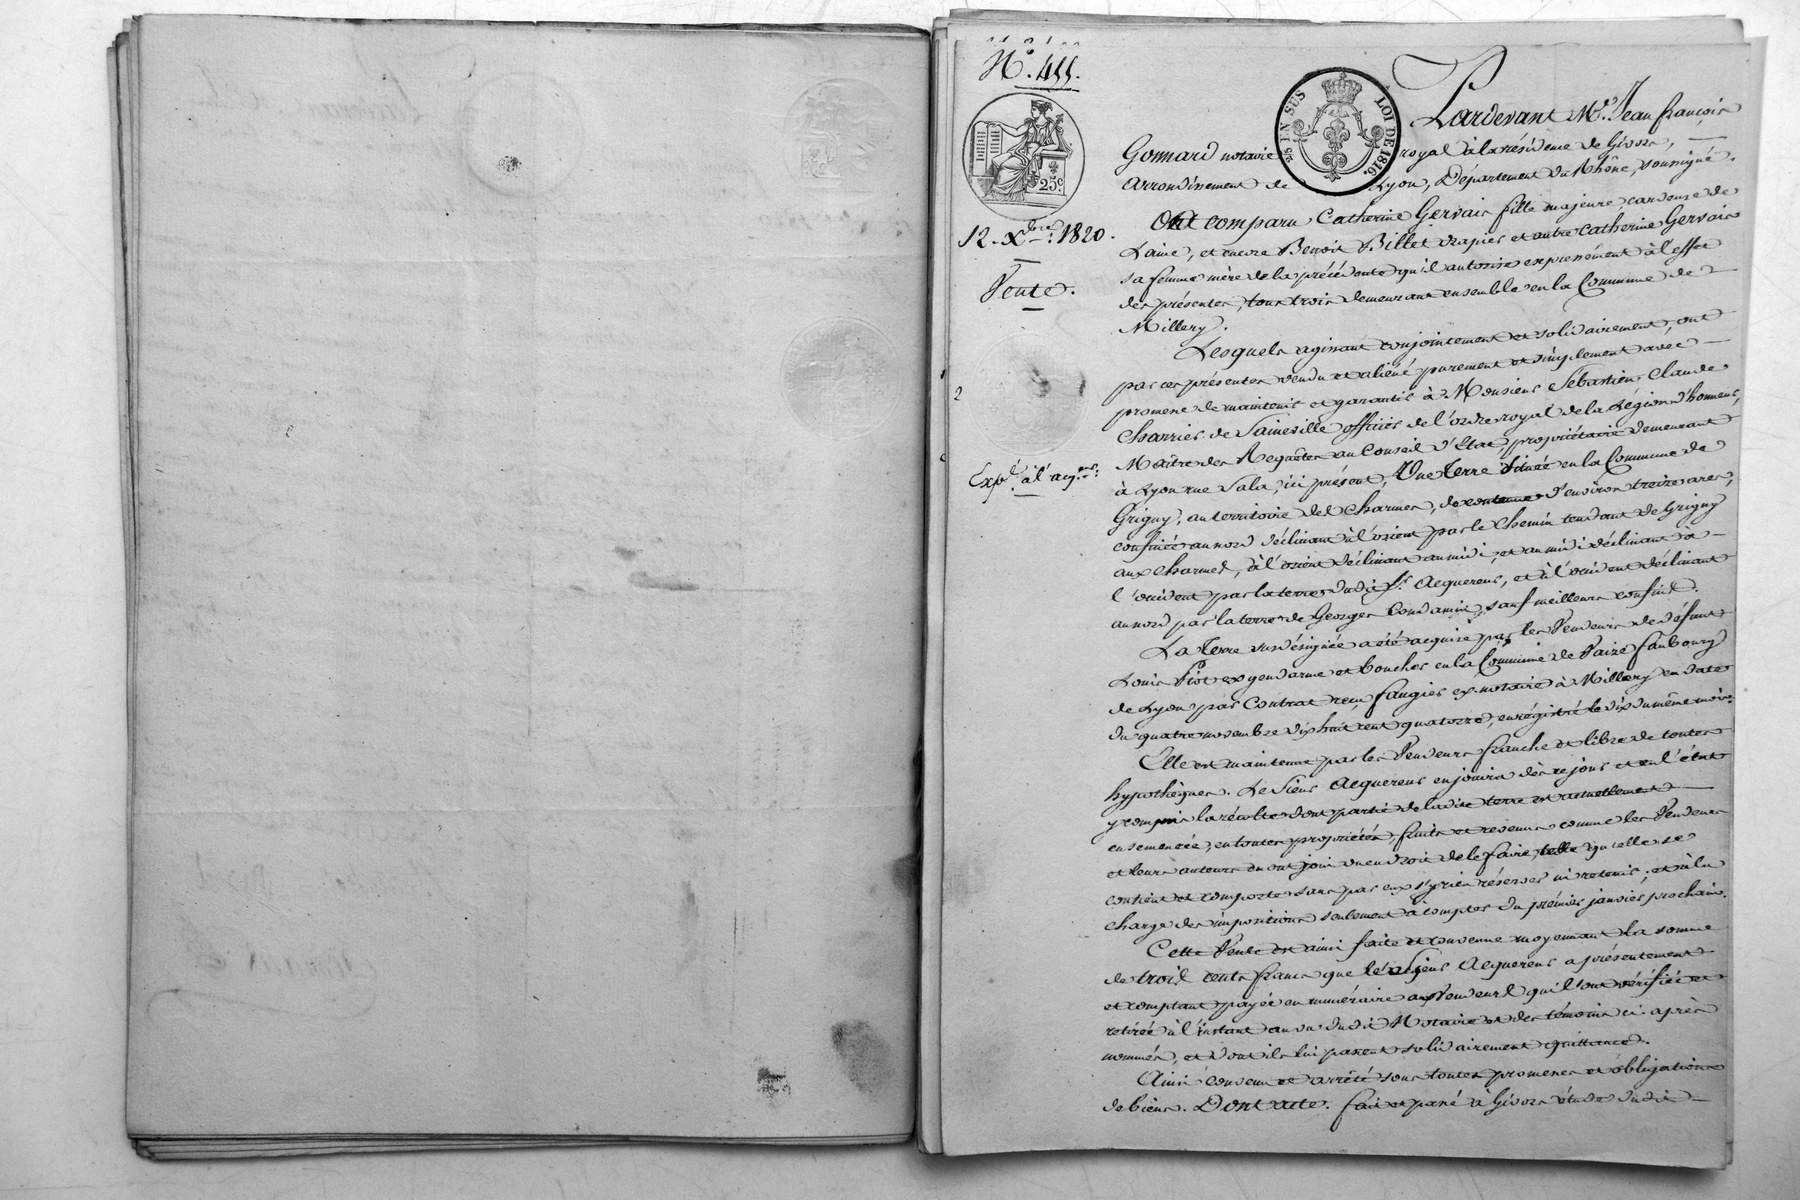 N.° 455.
25 EN SUS
LOI DE 1816.
25 c
12. Xbre 1820.
Vente.
2
Expd. à l'acq.eur
Pardevant Me. Jean françois
Gonnard notaire royal à la résidence de Givors,
arrondissement de Lyon, Département du Rhône, soussigné.
Ont comparu Catherine Gervais fille majeure cardeuse de
Laine, et encore Benoit Billet drapier et autre Catherine Gervais
sa femme mère de la précédente qu'il autorise expressément à l'effet
des présentes, tous trois demeurant ensemble en la Commune de
Millery.
Lesquels agissant conjointement et solidairement, ont
par ces présentes vendu et aliéné purement et simplement avec
promesse de maintenir et garantir à Monsieur Sébastien Claude
Charrier de Sainneville officier de l'ordre royal de la Légion d'honneur,
Maître des Requêtes au Conseil d'Etat, propriétaire demeurant
à Lyon rue Sala, ici présent, Une Terre située en la Commune de
Grigny, au territoire des Charmes, de contenue d'environ treize ares,
confinée au nord déclinant à l'orient par le Chemin tendant de Grigny
aux Charmes, à l'orient déclinant au midi, et au midi déclinant à
l'occident par la terre dudit Sr. Acquereur, et à l'occident déclinant
au nord par la terre de Georges Condamin, sauf meilleurs confins.
La Terre susdésignée a été acquise par les Vendeurs de défunt
Louis Piot ex gendarme et boucher en la Commune de Vaize faubourg
de Lyon par Contrat reçu faugier ex-notaire à Millery en date
du quatre novembre dix huit cent quatorze, enrégistré le dix du même mois.
Elle est maintenue par les Vendeurs franche et libre de toutes
hypothèques. Le Sieur Acquereur en jouira dès ce jour et en l'état
y compris la récolte dont partie de la dite terre est actuellement
ensemencée, en toutes propriétés, fruits et revenus comme les Vendeurs
et leurs auteurs en ont joui ou eu droit de le faire, telle qu'elle se
contient et comporte sans par eux s'y rien réserver ni retenir; et à la
charge des impositions seulement à compter du prémier janvier prochain.
Cette Vente est ainsi faite et convenue moyennant la somme
de trois cents francs que le Sieur Acquereur a présentement
et comptant payée en numéraire aux Vendeurs qui l'ont vérifiée et
retirée à l'instant au vu dudit Notaire et des témoins ci-après
nommés, et dont ils lui passent solidairement quittance.
Ainsi convenu et arrêté sous toutes promesses et obligations
de biens. Dont acte. fait et passé à Givors étude dudit